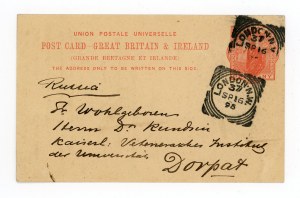 UNION POSTALE UNIVERSELLE
POST CARD-GREAT BRITAIN & IRELAND
(GRANDE BRETAGNE ET IRLANDE)
THE ADDRESS ONLY TO BE WRITTEN ON THIS SIDE.
LONDON.N.W.
37
SP 16
LONDON.N.W.
37
SP 16
98
Russia
Sr Wohlgeboren
Herrn Dr
Kaiserl: Veterinäres Institut
der Universität
Dorpat